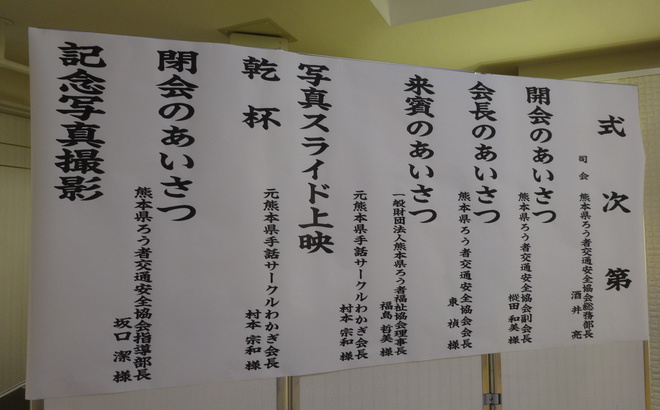 式次第
司会 熊本県ろう者交通安全協会総務部長
酒井 亮
開会のあいさつ
熊本県ろう者交通安全協会副会長
樅田 和美 様
会長のあいさつ
熊本県ろう者交通安全協会会長
東 禎 様
来賓のあいさつ
一般財団法人熊本県ろう者福祉協会理事長
福島 哲美 様
写真スライド上映
元熊本県手話サークルわかぎ会長
村本 宗和 様
乾杯
元熊本県手話サークルわかぎ会長
村本 宗和 様
閉会のあいさつ
熊本県ろう者交通安全協会指導部長
坂口 潔 様
記念写真撮影